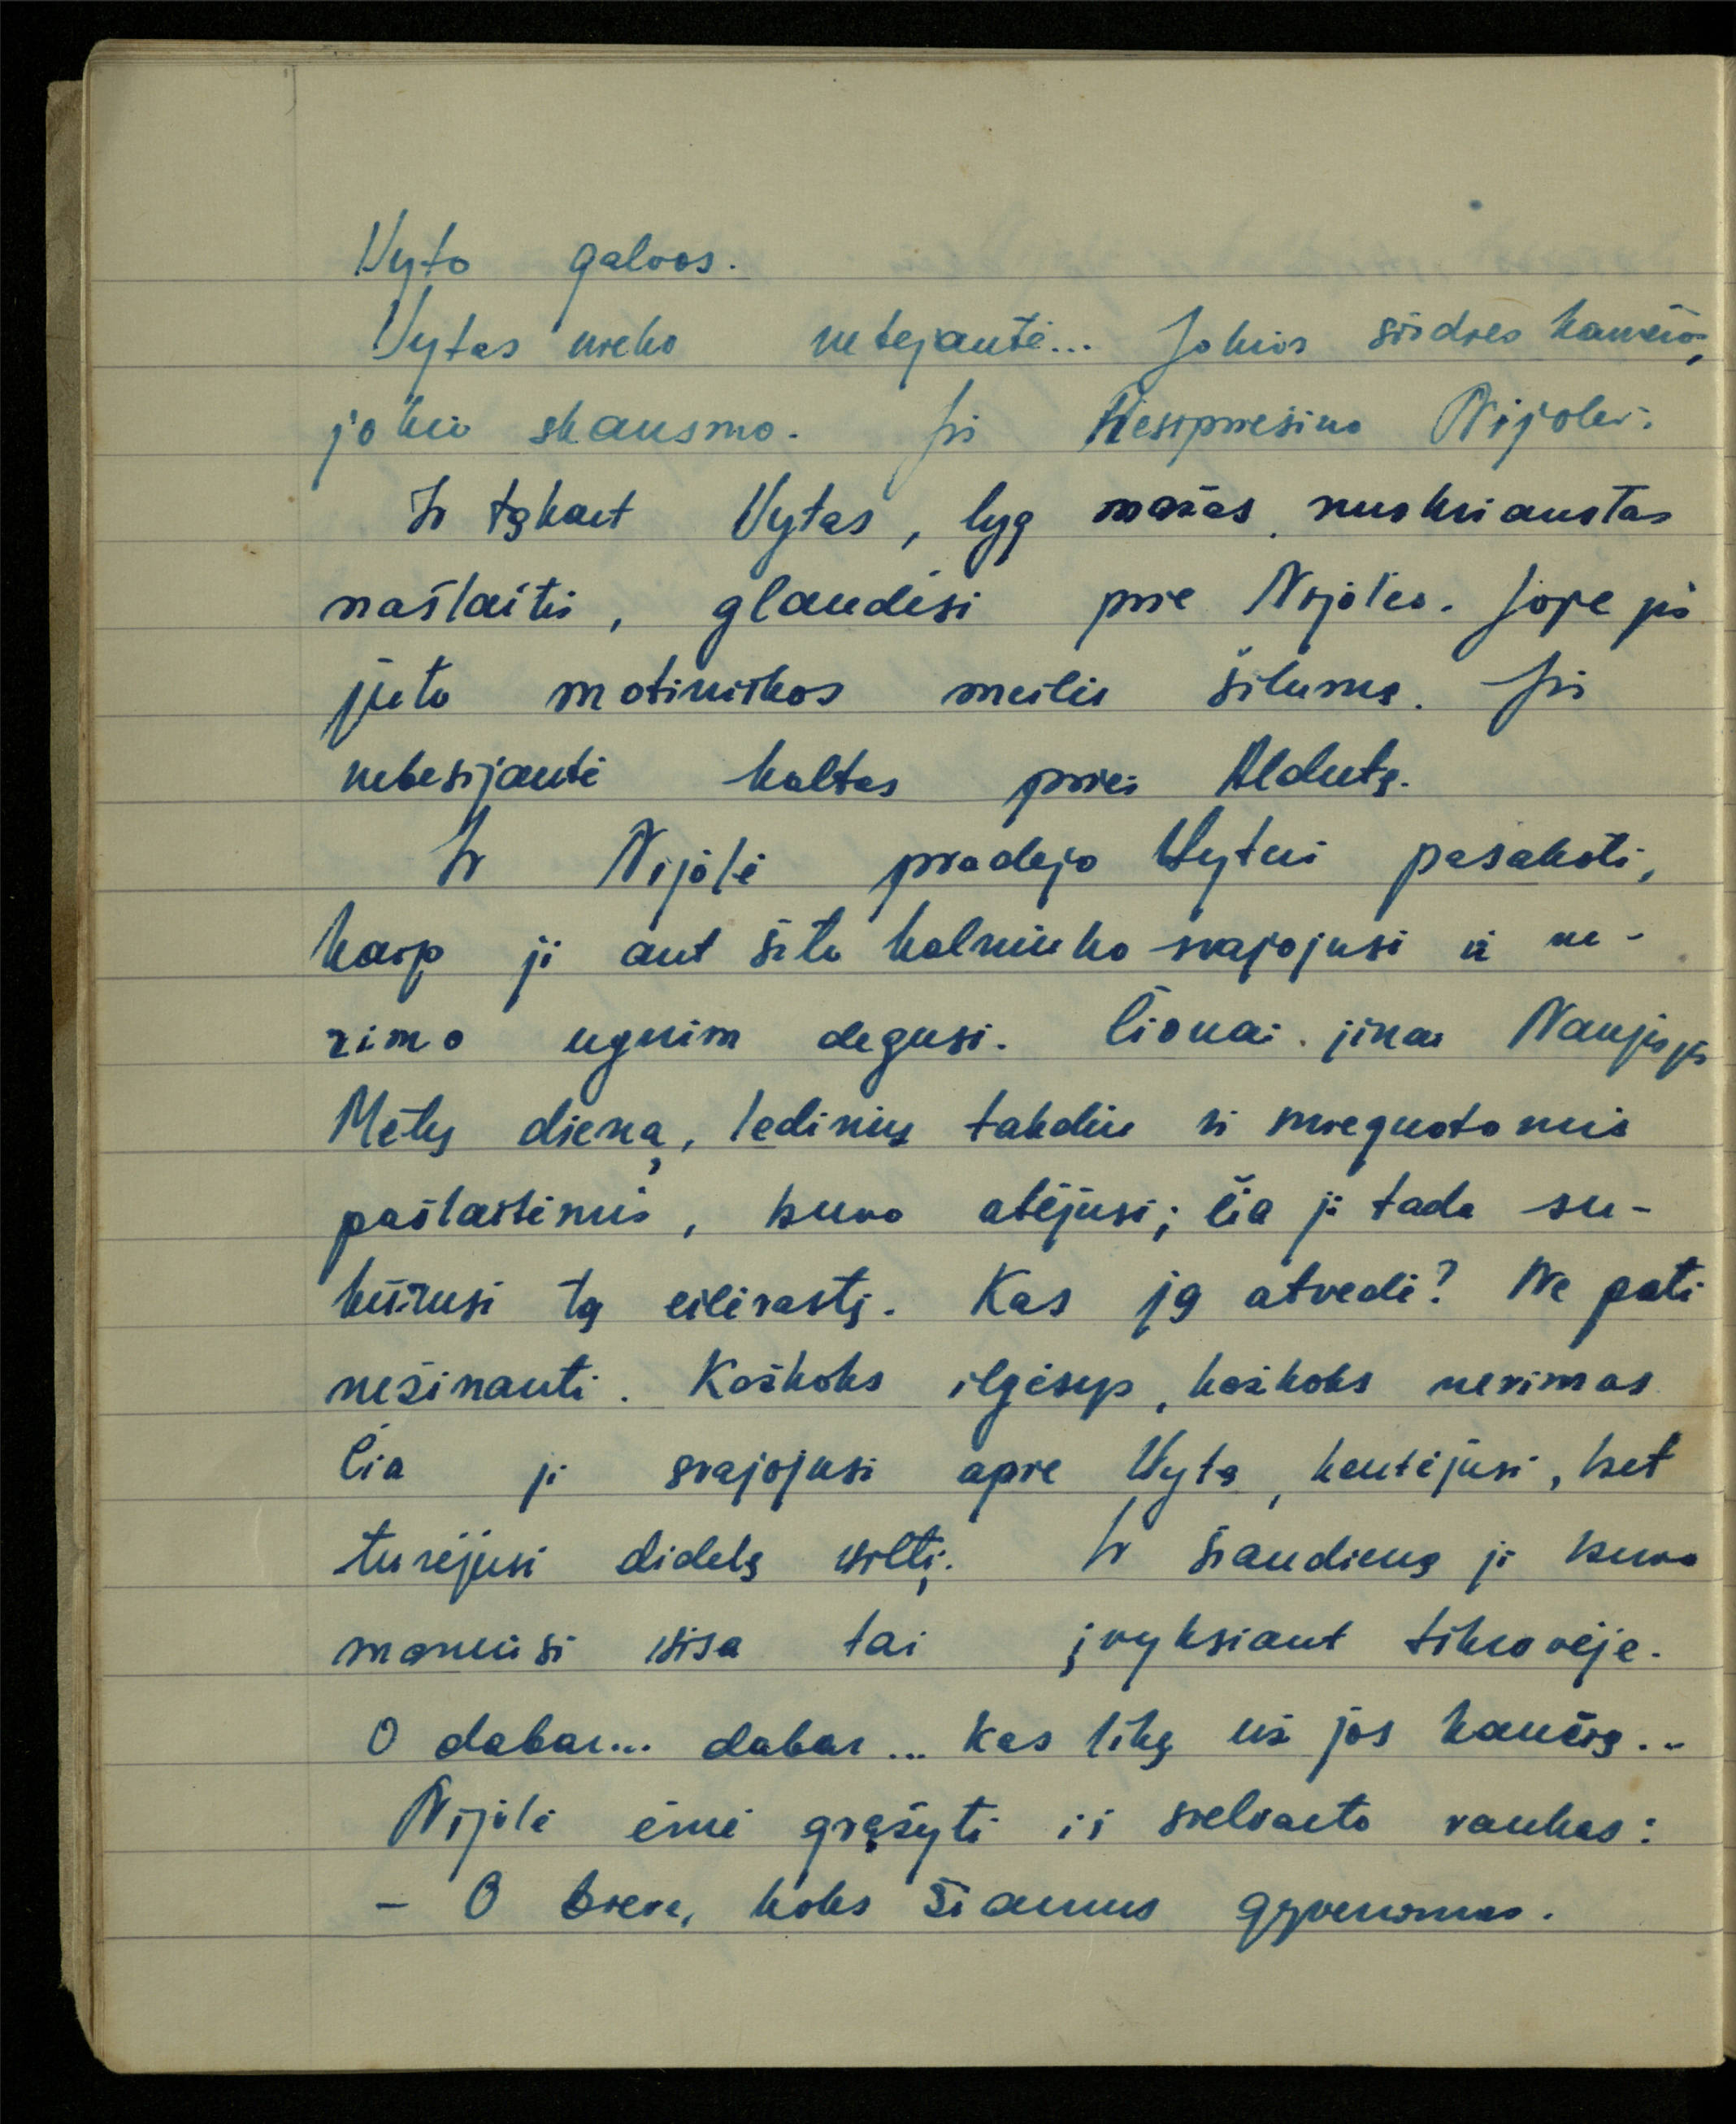 Vyto galvos.
Vytas nieko nebejautė... Jokios širdies kančios,
jokio skausmo. Jis nesipriešino Nijolei.
Ir tąkart Vytas, lyg mažas nuskriaustas
našlaitis, glaudėsi prie Nijolės. Joje jis
juto motiniškos meilės šilumą. Jis
nebesijautė kaltas prieš Aldutę.
Ir Nijolė pradėjo Vytui pasakoti,
kaip ji ant šito kalniuko svajojusi ir ne-
rimo ugnim degusi. Čionai jinai Naujųjų
Metų dieną, lediniu takeliu ir snieguotomis
pašlaitėmis, buvo atėjusi; čia ji tada su-
kūrusi tą eilėraštį. Kas ją atvedė? Ne pati
nežinanti. Kažkoks ilgesys, kažkoks nerimas
Čia ji svajojusi apie Vytą, kentėjusi, bet
turėjusi didelę viltį. Ir šiandieną ji buvo
maniusi visa tai įvyksiant tikrovėje.
O dabar... dabar... Kas liko už jos kančią...
Nijolė ėmė grąžyti iš sielvarto rankas:
- O Dieve, koks žiaurus gyvenimas.